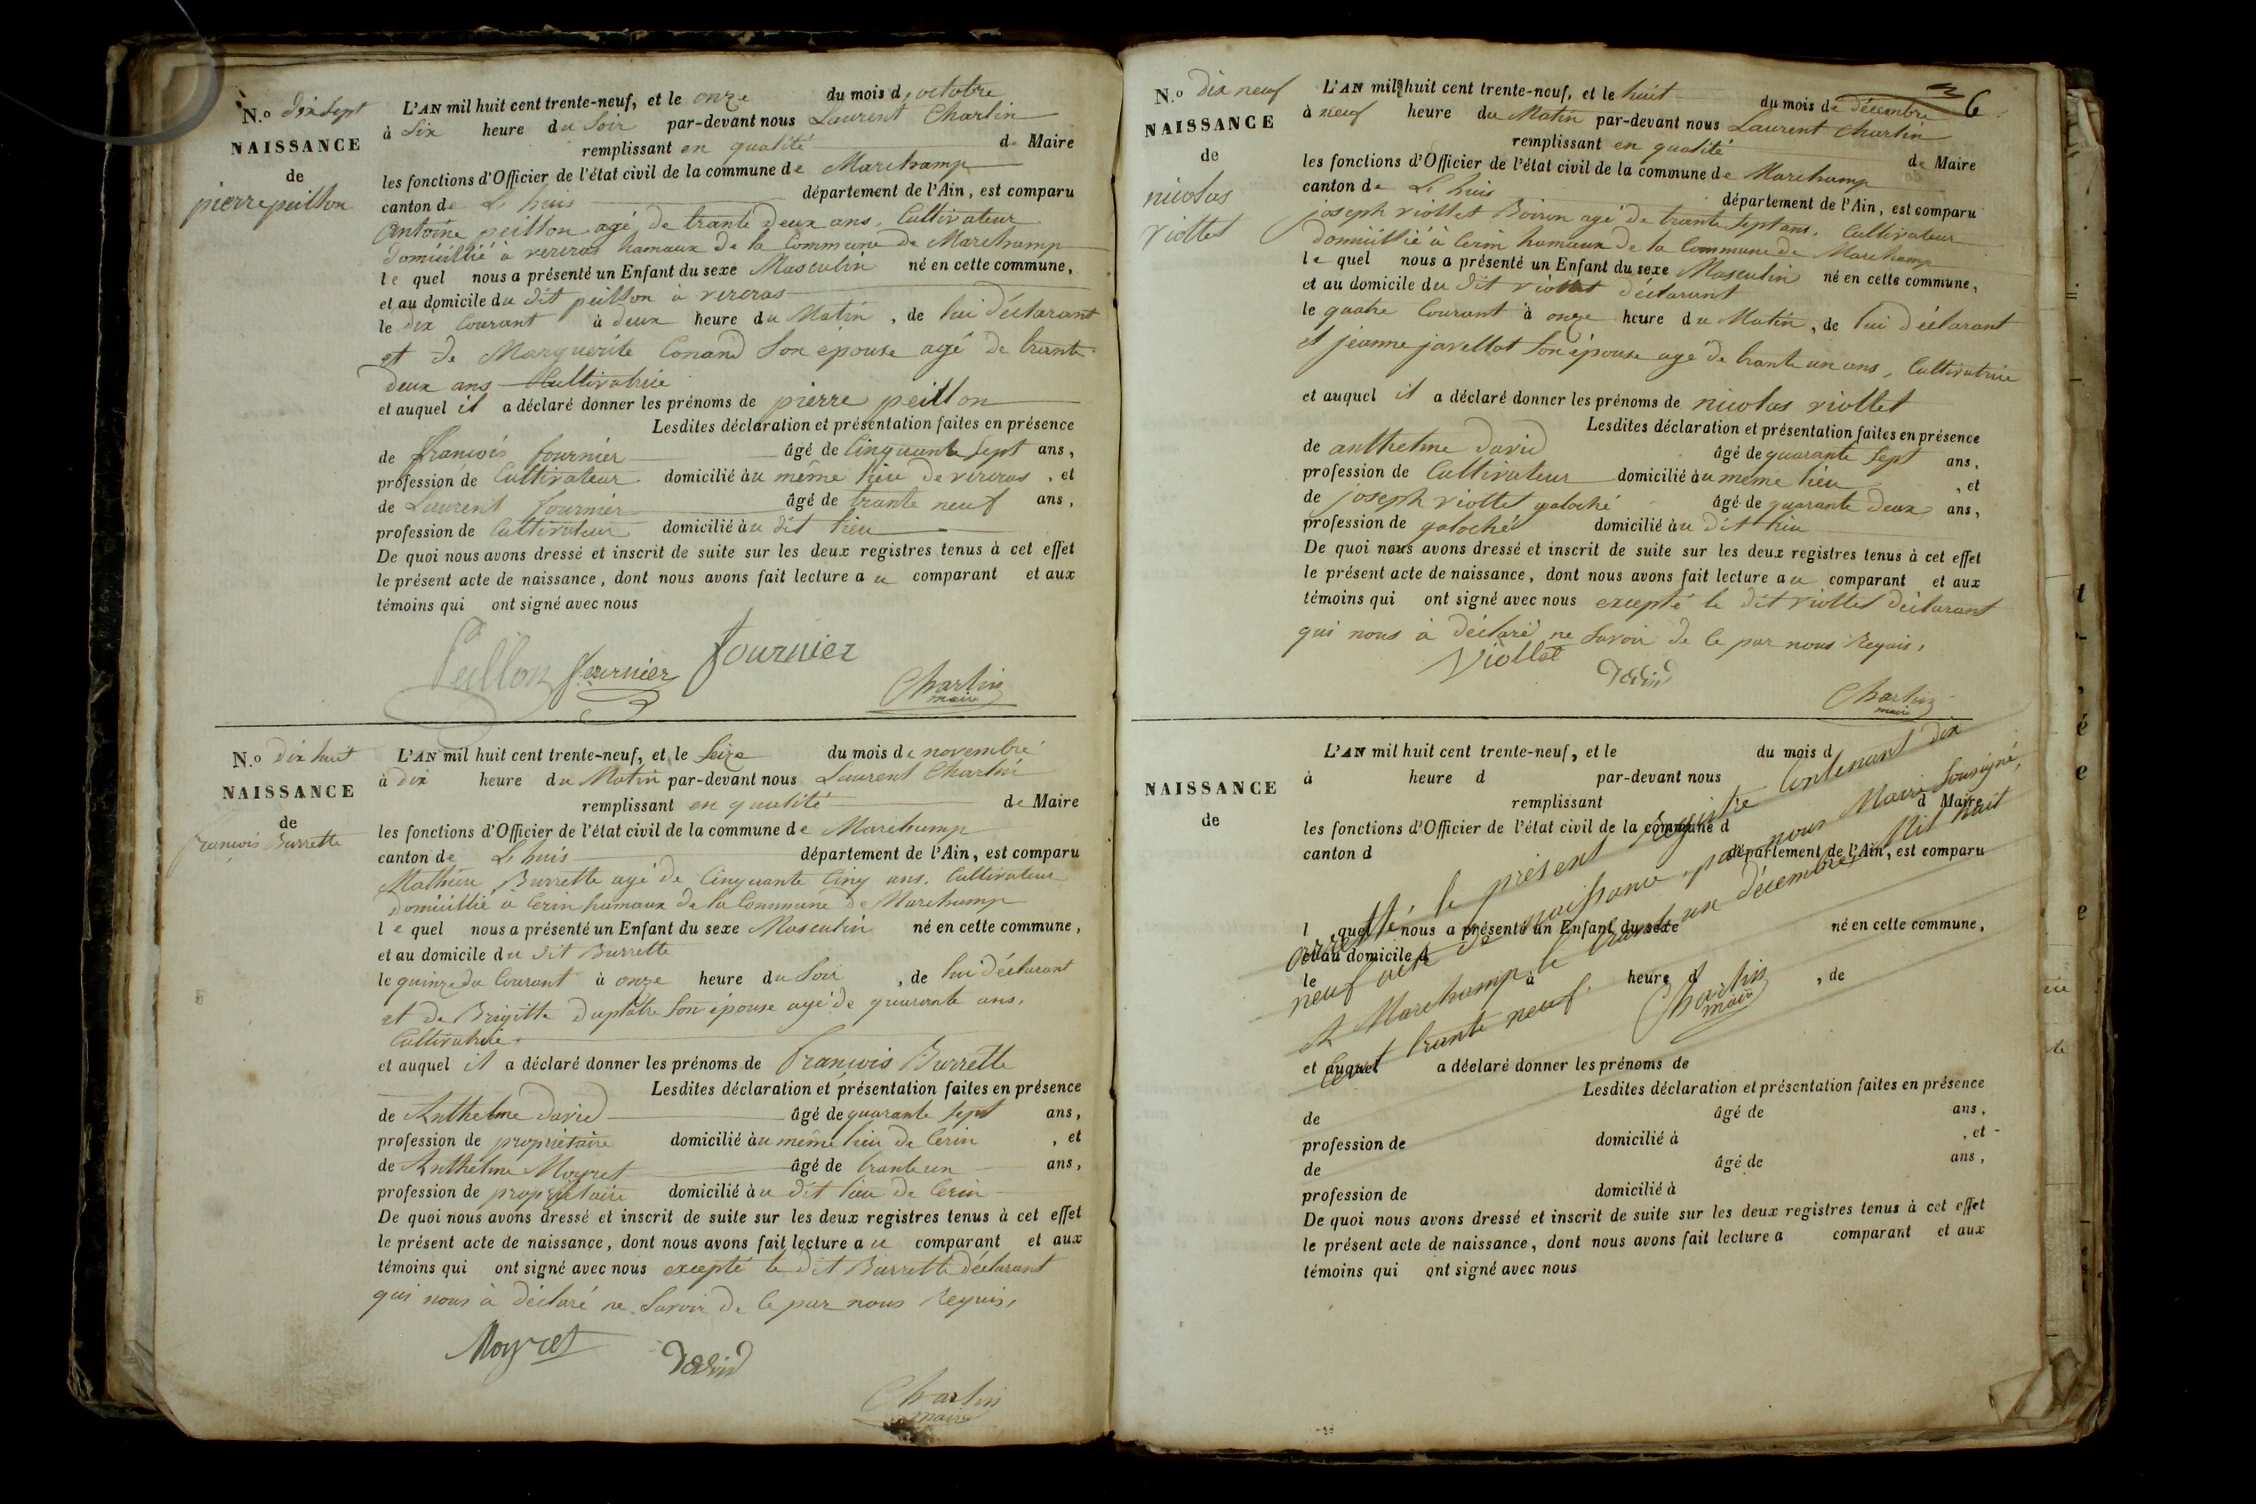 N.o dix sept
NAISSANCE
de
pierre peillon
L'AN mil huit cent trente-neuf, et le onze du mois d'octobre
à Six heure du Soir par-devant nous Laurent Charlin
remplissant en qualité de Maire
les fonctions d'Officier de l'état civil de la commune de Marchamp
canton de L huis département de l'Ain, est comparu
Antoine peillon agé de trante deux ans, Cultivateur
domicillié à vereras hamaux de la Commune de Marchamp
le quel nous a présenté un Enfant du sexe Masculin né en cette commune,
et au domicile du dit peillon à vereras
le dix Courant à deux heure du Matin, de lui déclarant
et de Marguerite Conand Son epouse agé de trante
deux ans Cultivatrice
et auquel il a déclaré donner les prénoms de pierre peillon
Lesdites déclaration et présentation faites en présence
de françois fournier âgé de Cinquante Sept ans,
profession de Cultivateur domicilié au même lieu de vereras, et
de Laurent fournier âgé de trante neuf ans,
profession de Cultivateur domicilié au dit lieu
De quoi nous avons dressé et inscrit de suite sur les deux registres tenus à cet effet
le présent acte de naissance, dont nous avons fait lecture au comparant et aux
témoins qui ont signé avec nous
Peillon fournier fournier
Charlin
maire
N.o dix huit
NAISSANCE
de
françois Burrette
L'AN mil huit cent trente-neuf, et le Seize du mois de novembre
à dix heure du Matin par-devant nous Laurent Charlin
remplissant en qualité de Maire
les fonctions d'Officier de l'état civil de la commune de Marchamp
canton de L huis département de l'Ain, est comparu
Mathieu Burrette agé de Cinquante Cinq ans, Cultivateur
domicillié à Cerin hamaux de la Commune de Marchamp
le quel nous a présenté un Enfant du sexe Masculin né en cette commune,
et au domicile du dit Burrette
le quinze du Courant à onze heure du Soir, de lui déclarant
et de Brigitte duplâtre Son épouse agé de quarante ans,
Cultivatrice
et auquel il a déclaré donner les prénoms de François Burrette
Lesdites déclaration et présentation faites en présence
de Anthelme david âgé de quarante Sept ans,
profession de propriétaire domicilié au même lieu de Cerin, et
de Anthelme Moyret âgé de trante un ans,
profession de propriétaire domicilié au dit lieu de Cerin
De quoi nous avons dressé et inscrit de suite sur les deux registres tenus à cet effet
le présent acte de naissance, dont nous avons fait lecture au comparant et aux
témoins qui ont signé avec nous excepté le dit Burrette déclarant
qui nous à déclaré ne Savoir de Ce par nous Requis,
Moyret david
Charlin
maire
6
N.o dix neuf
NAISSANCE
de
nicolas
viollet
L'AN mil huit cent trente-neuf, et le huit du mois de décembre
à neuf heure du Matin par-devant nous Laurent Charlin
remplissant en qualité de Maire
les fonctions d'Officier de l'état civil de la commune de Marchamp
canton de L huis département de l'Ain, est comparu
joseph viollet Boiron agé de trante Sept ans, Cultivateur
domicillié à Cerin hamaux de la Commune de Marchamp
le quel nous a présenté un Enfant du sexe Masculin né en cette commune,
et au domicile du dit viollet déclarant
le quatre Courant à onze heure du Matin, de lui déclarant
et jeanne javellot Son épouse agé de trante un ans, Cultivatrice
et auquel il a déclaré donner les prénoms de nicolas viollet
Lesdites déclaration et présentation faites en présence
de anthelme david âgé de quarante Sept ans,
profession de Cultivateur domicilié au même lieu, et
de joseph viollet galoché âgé de quarante deux ans,
profession de galoché domicilié au dit lieu
De quoi nous avons dressé et inscrit de suite sur les deux registres tenus à cet effet
le présent acte de naissance, dont nous avons fait lecture au comparant et aux
témoins qui ont signé avec nous excepté le dit viollet déclarant
qui nous à déclaré ne Savoir de Ce par nous Requis,
Viollet david
Charlin
maire
NAISSANCE
de
L'AN mil huit cent trente-neuf, et le du mois d
à heure d par-devant nous
remplissant d Maire
les fonctions d'Officier de l'état civil de la commune d
canton d département de l'Ain, est comparu
l quel nous a présenté un Enfant du sexe né en cette commune,
et au domicile d
le à heure d, de
et auquel a déclaré donner les prénoms de
Lesdites déclaration et présentation faites en présence
de âgé de ans,
profession de domicilié à, et
de âgé de ans,
profession de domicilié à
De quoi nous avons dressé et inscrit de suite sur les deux registres tenus à cet effet
le présent acte de naissance, dont nous avons fait lecture a comparant et aux
témoins qui ont signé avec nous
arretté le présent Registre Contenant dix
neuf acte de naissance, par nous Maire Sousigné,
A Marchamp le trante un décembre Mil huit
Cent trante neuf.
Charlin
maire